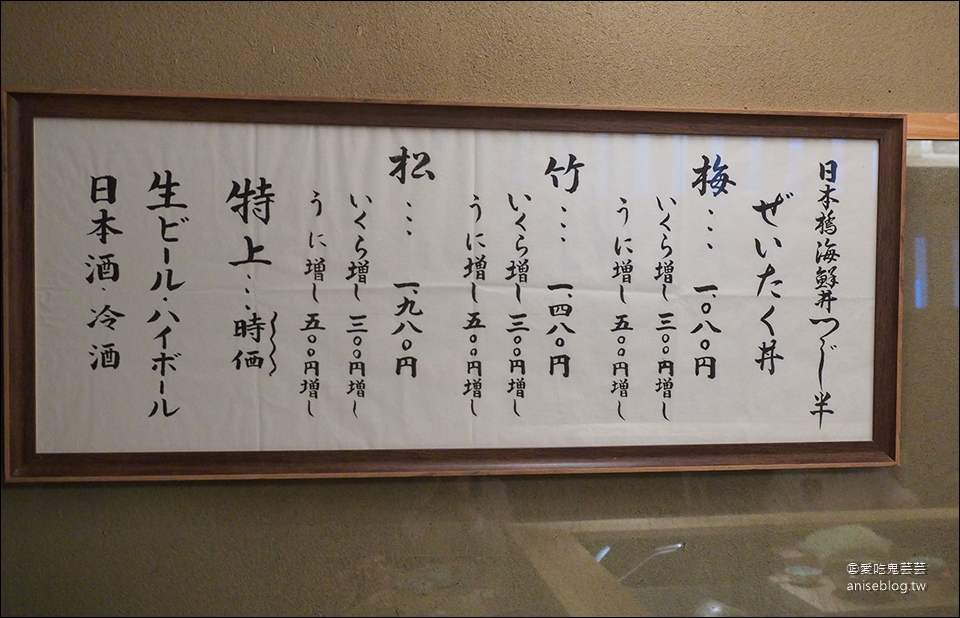 日本橋海鮮丼つじ半
ぜいたく丼
梅… 一、〇八〇円
いくら増し 三〇〇円増し
うに増し 五〇〇円増し
竹… 一、四八〇円
いくら増し 三〇〇円増し
うに増し 五〇〇円増し
松… 一、九八〇円
いくら増し 三〇〇円増し
うに増し 五〇〇円増し
特上…時価
生ビール・ハイボール
日本酒・冷酒
愛吃鬼芸芸
aniseblog.tw